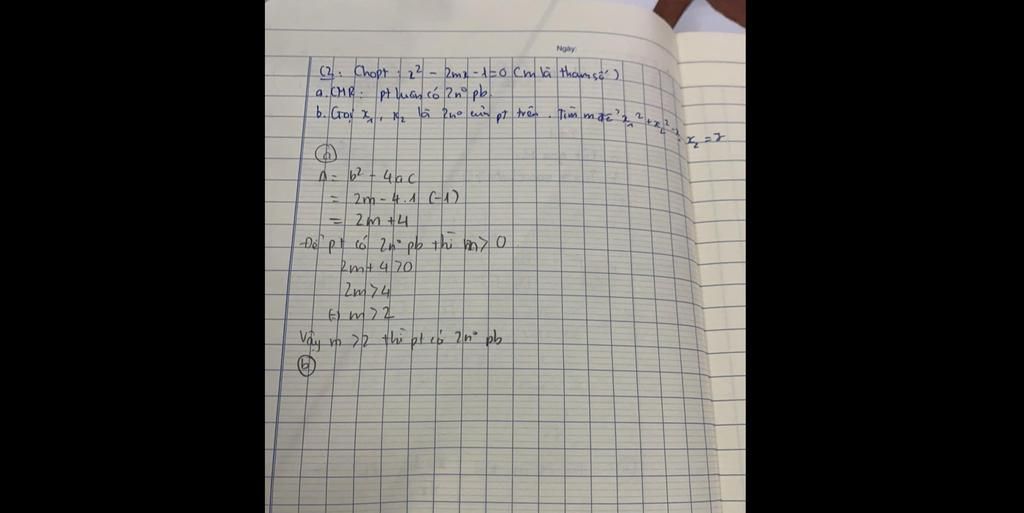 Ngày:
C2: Cho pt: x² - 2mx - 1 = 0 (m là tham số)
a. CMR: pt luôn có 2n° pb.
b. Gọi x₁, x₂ là 2n° của pt trên. Tìm m để x₁² + x₂² - x₁ x₂ = 7
a
Δ = b² - 4ac
= 2m - 4.1 (-1)
= 2m + 4
Để pt có 2n° pb thì m > 0
2m + 4 > 0
2m > 4
(=) m > 2
Vậy m > 2 thì pt có 2n° pb
b